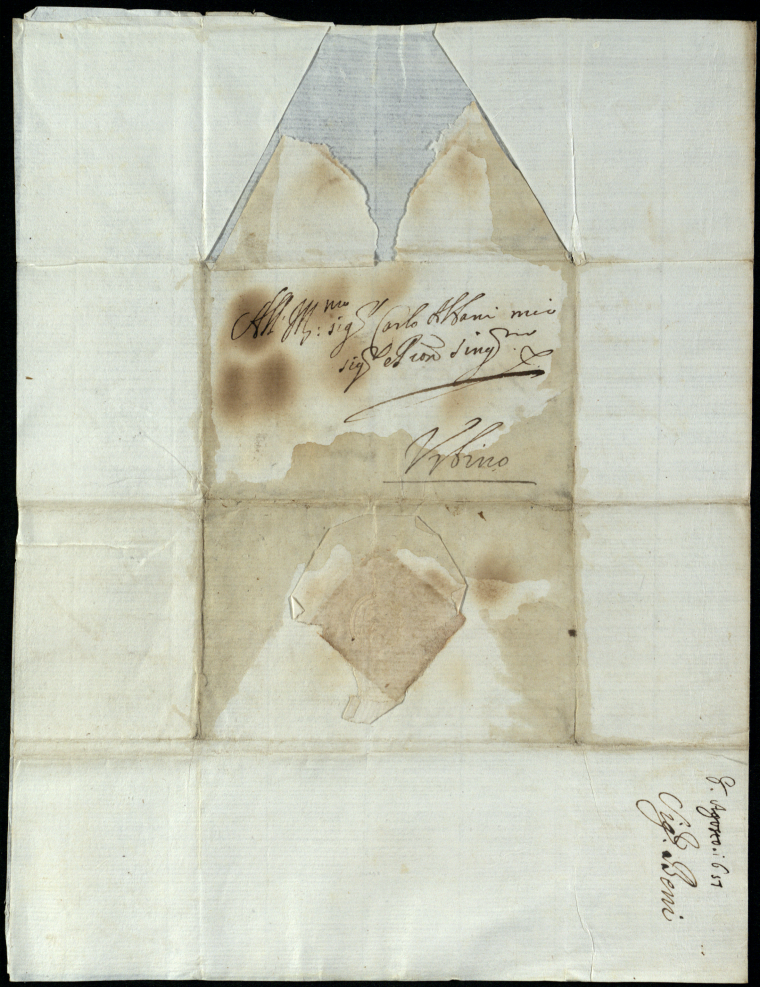 All' Ill:mo sig.r Carlo Albani mio
sig.r e Pron Sing.mo
Urbino
8. Agosto. 1651
Sig.r Beni